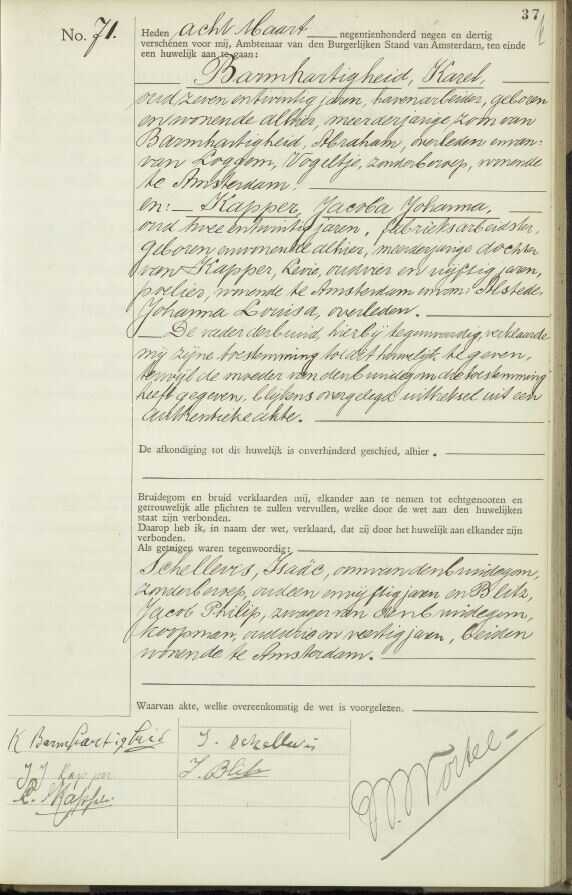 37
No. 71.
Heden acht Maart negentienhonderd negen en dertig
verschenen voor mij, Ambtenaar van den Burgerlijken Stand van Amsterdam, ten einde
een huwelijk aan te gaan:
Barmhartigheid, Karel,
oud zeven en twintig jaren, havenarbeider, geboren
en wonende alhier, meerderjarige zoon van
Barmhartigheid, Abraham, overleden en van
van Loggem, Vogeltje, zonder beroep, wonende
te Amsterdam.
en: Kapper, Jacoba Johanna,
oud twee en twintig jaren, fabrieksarbeidster,
geboren en wonende alhier, meerderjarige dochter
van Kapper, Levie, oud vier en vijftig jaren,
poelier, wonende te Amsterdam en van: Alstede,
Johanna Louisa, overleden.
De vader der bruid, hierbij tegenwoordig, verklaarde
mij zijne toestemming tot dit huwelijk te geven,
terwijl de moeder van den bruidegom die toestemming
heeft gegeven, blijkens overgelegd uittreksel uit een
authentieke akte.
De afkondiging tot dit huwelijk is onverhinderd geschied, alhier.
Bruidegom en bruid verklaarden mij, elkander aan te nemen tot echtgenooten en
getrouwelijk alle plichten te zullen vervullen, welke door de wet aan den huwelijken
staat zijn verbonden.
Daarop heb ik, in naam der wet, verklaard, dat zij door het huwelijk aan elkander zijn
verbonden.
Als getuigen waren tegenwoordig:
Schellevis, Isaäc, oom van den bruidegom,
zonder beroep, oud een en vijftig jaren en Blitz,
Jacob Philip, zwager van den bruidegom,
koopman, oud drie en veertig jaren, beiden
wonende te Amsterdam.
Waarvan akte, welke overeenkomstig de wet is voorgelezen.
K Barmhartigheid
I. Schellevis
J J Kapper
J. Blitz
L. Kapper